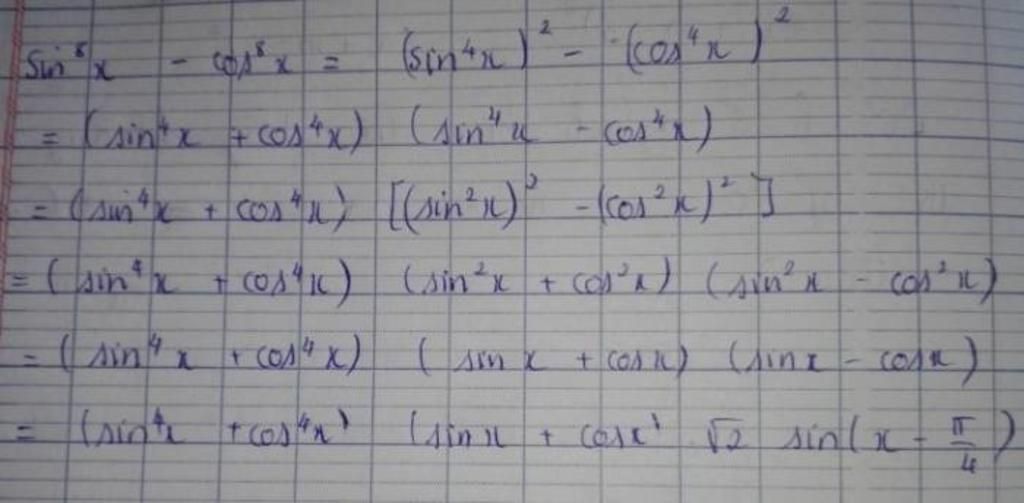 sin⁸x - cos⁸x = (sin⁴x)² - (cos⁴x)²
= (sin⁴x + cos⁴x) (sin⁴x - cos⁴x)
= (sin⁴x + cos⁴x) [(sin²x)² - (cos²x)²]
= (sin⁴x + cos⁴x) (sin²x + cos²x) (sin²x - cos²x)
= (sin⁴x + cos⁴x) (sin x + cos x) (sin x - cos x)
= (sin⁴x + cos⁴x) (sin x + cos x) √2 sin(x - π/4)